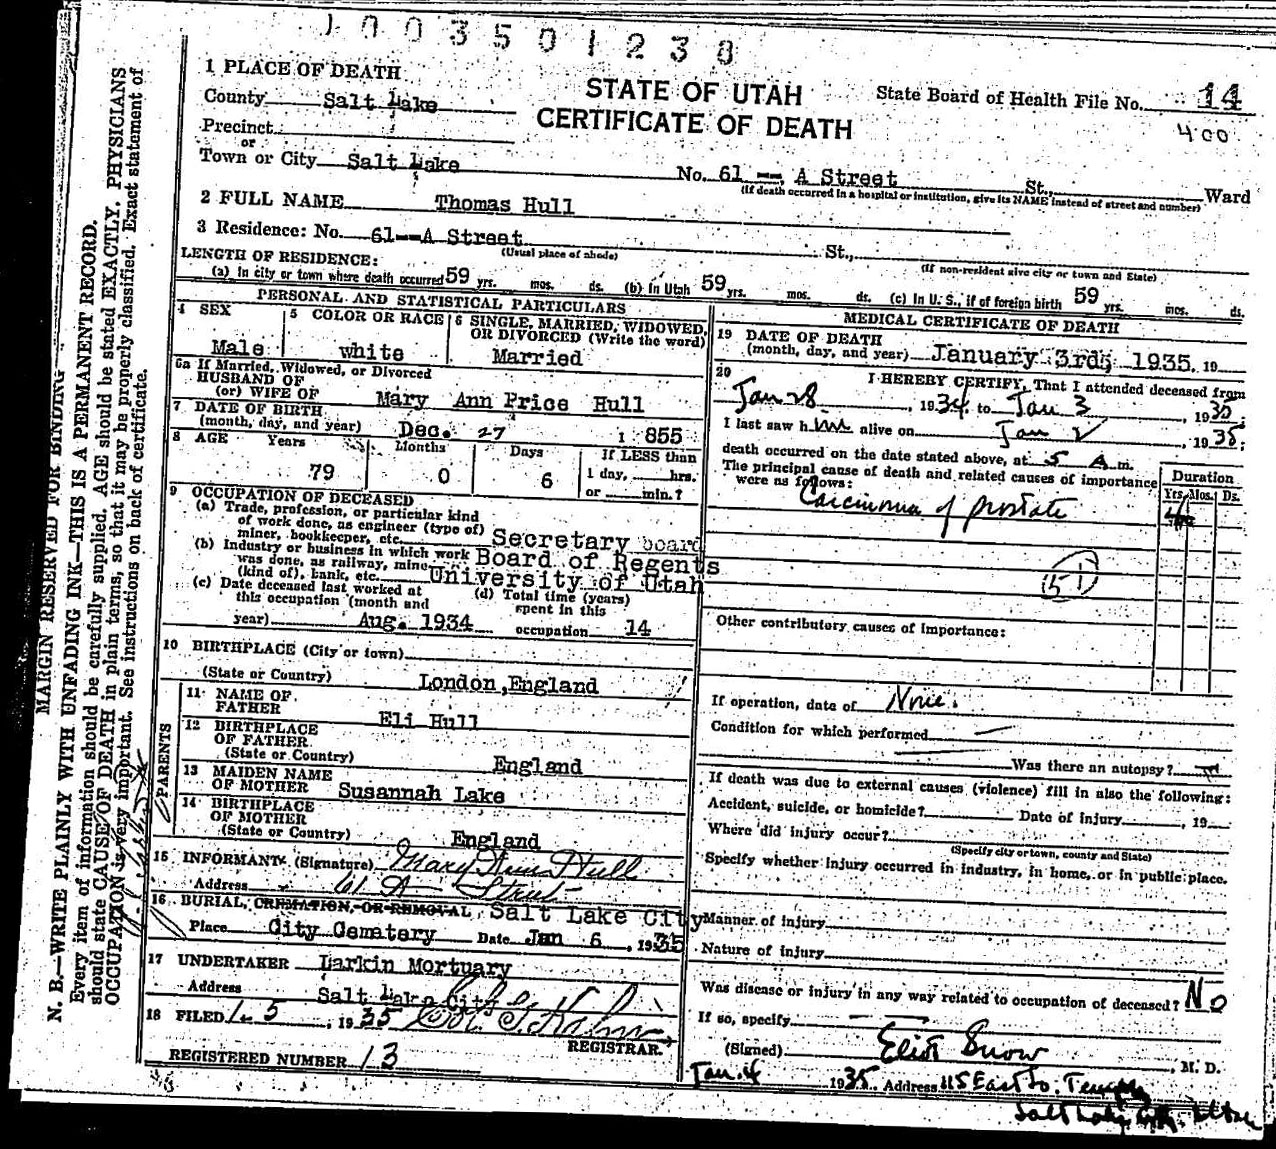 1003501230
1 PLACE OF DEATH
STATE OF UTAH
CERTIFICATE OF DEATH
State Board of Health File No. 14
400
County Salt Lake
Precinct
or
Town or City Salt Lake No. 61 -- A Street St., Ward
(If death occurred in a hospital or institution, give its NAME instead of street and number)
2 FULL NAME Thomas Hull
3 Residence: No. 61--A Street St.,
(Usual place of abode) (If non-resident give city or town and State)
LENGTH OF RESIDENCE:
(a) In city or town where death occurred 59 yrs. mos. ds. (b) In Utah 59 yrs. mos. ds. (c) In U. S., if of foreign birth 59 yrs. mos. ds.
PERSONAL AND STATISTICAL PARTICULARS
4 SEX
Male
5 COLOR OR RACE
white
6 SINGLE, MARRIED, WIDOWED,
OR DIVORCED (Write the word)
Married
6a If Married, Widowed, or Divorced
HUSBAND OF
(or) WIFE OF Mary Ann Price Hull
7 DATE OF BIRTH
(month, day, and year) Dec. 27 1855
8 AGE Years Months Days If LESS than
79 0 6 1 day, hrs.
or min.?
9 OCCUPATION OF DECEASED
(a) Trade, profession, or particular kind
of work done, as engineer (type of)
miner, bookkeeper, etc. Secretary board
(b) Industry or business in which work Board of Regents
was done, as railway, mine
(kind of), bank, etc. University of Utah
(c) Date deceased last worked at
this occupation (month and
year) Aug. 1934
(d) Total time (years)
spent in this
occupation 14
10 BIRTHPLACE (City or town)
(State or Country) London, England
PARENTS
11 NAME OF
FATHER Eli Hull
12 BIRTHPLACE
OF FATHER
(State or Country) England
13 MAIDEN NAME
OF MOTHER Susannah Lake
14 BIRTHPLACE
OF MOTHER
(State or Country) England
15 INFORMANT (Signature) Mary Ann Hull
Address 61 A Street
16 BURIAL, CREMATION, OR REMOVAL Salt Lake City
Place City Cemetery Date Jan 6, 1935
17 UNDERTAKER Larkin Mortuary
Address Salt Lake City
18 FILED 1-5, 1935
REGISTRAR.
REGISTERED NUMBER 13
MEDICAL CERTIFICATE OF DEATH
19 DATE OF DEATH
(month, day, and year) January 3rd, 1935. 19
20 I HEREBY CERTIFY, That I attended deceased from
Jan 28, 1934 to Jan 3, 1935.
I last saw him alive on Jan 2, 1935;
death occurred on the date stated above, at 5 A m.
The principal cause of death and related causes of importance
were as follows:
Duration
Yrs. Mos. Ds.
Carcinoma of prostate
(51)
Other contributory causes of importance:
If operation, date of None.
Condition for which performed
Was there an autopsy?
If death was due to external causes (violence) fill in also the following:
Accident, suicide, or homicide? Date of injury, 19
Where did injury occur?
(Specify city or town, county and State)
Specify whether injury occurred in industry, in home, or in public place.
Manner of injury
Nature of injury
Was disease or injury in any way related to occupation of deceased? No
If so, specify
(Signed) Eliot Snow, M. D.
Jan. 4 1935. Address 115 East So. Temple
Salt Lake City, Utah
MARGIN RESERVED FOR BINDING
N. B.—WRITE PLAINLY WITH UNFADING INK—THIS IS A PERMANENT RECORD.
Every item of information should be carefully supplied. AGE should be stated EXACTLY. PHYSICIANS
should state CAUSE OF DEATH in plain terms, so that it may be properly classified. Exact statement of
OCCUPATION is very important. See instructions on back of certificate.